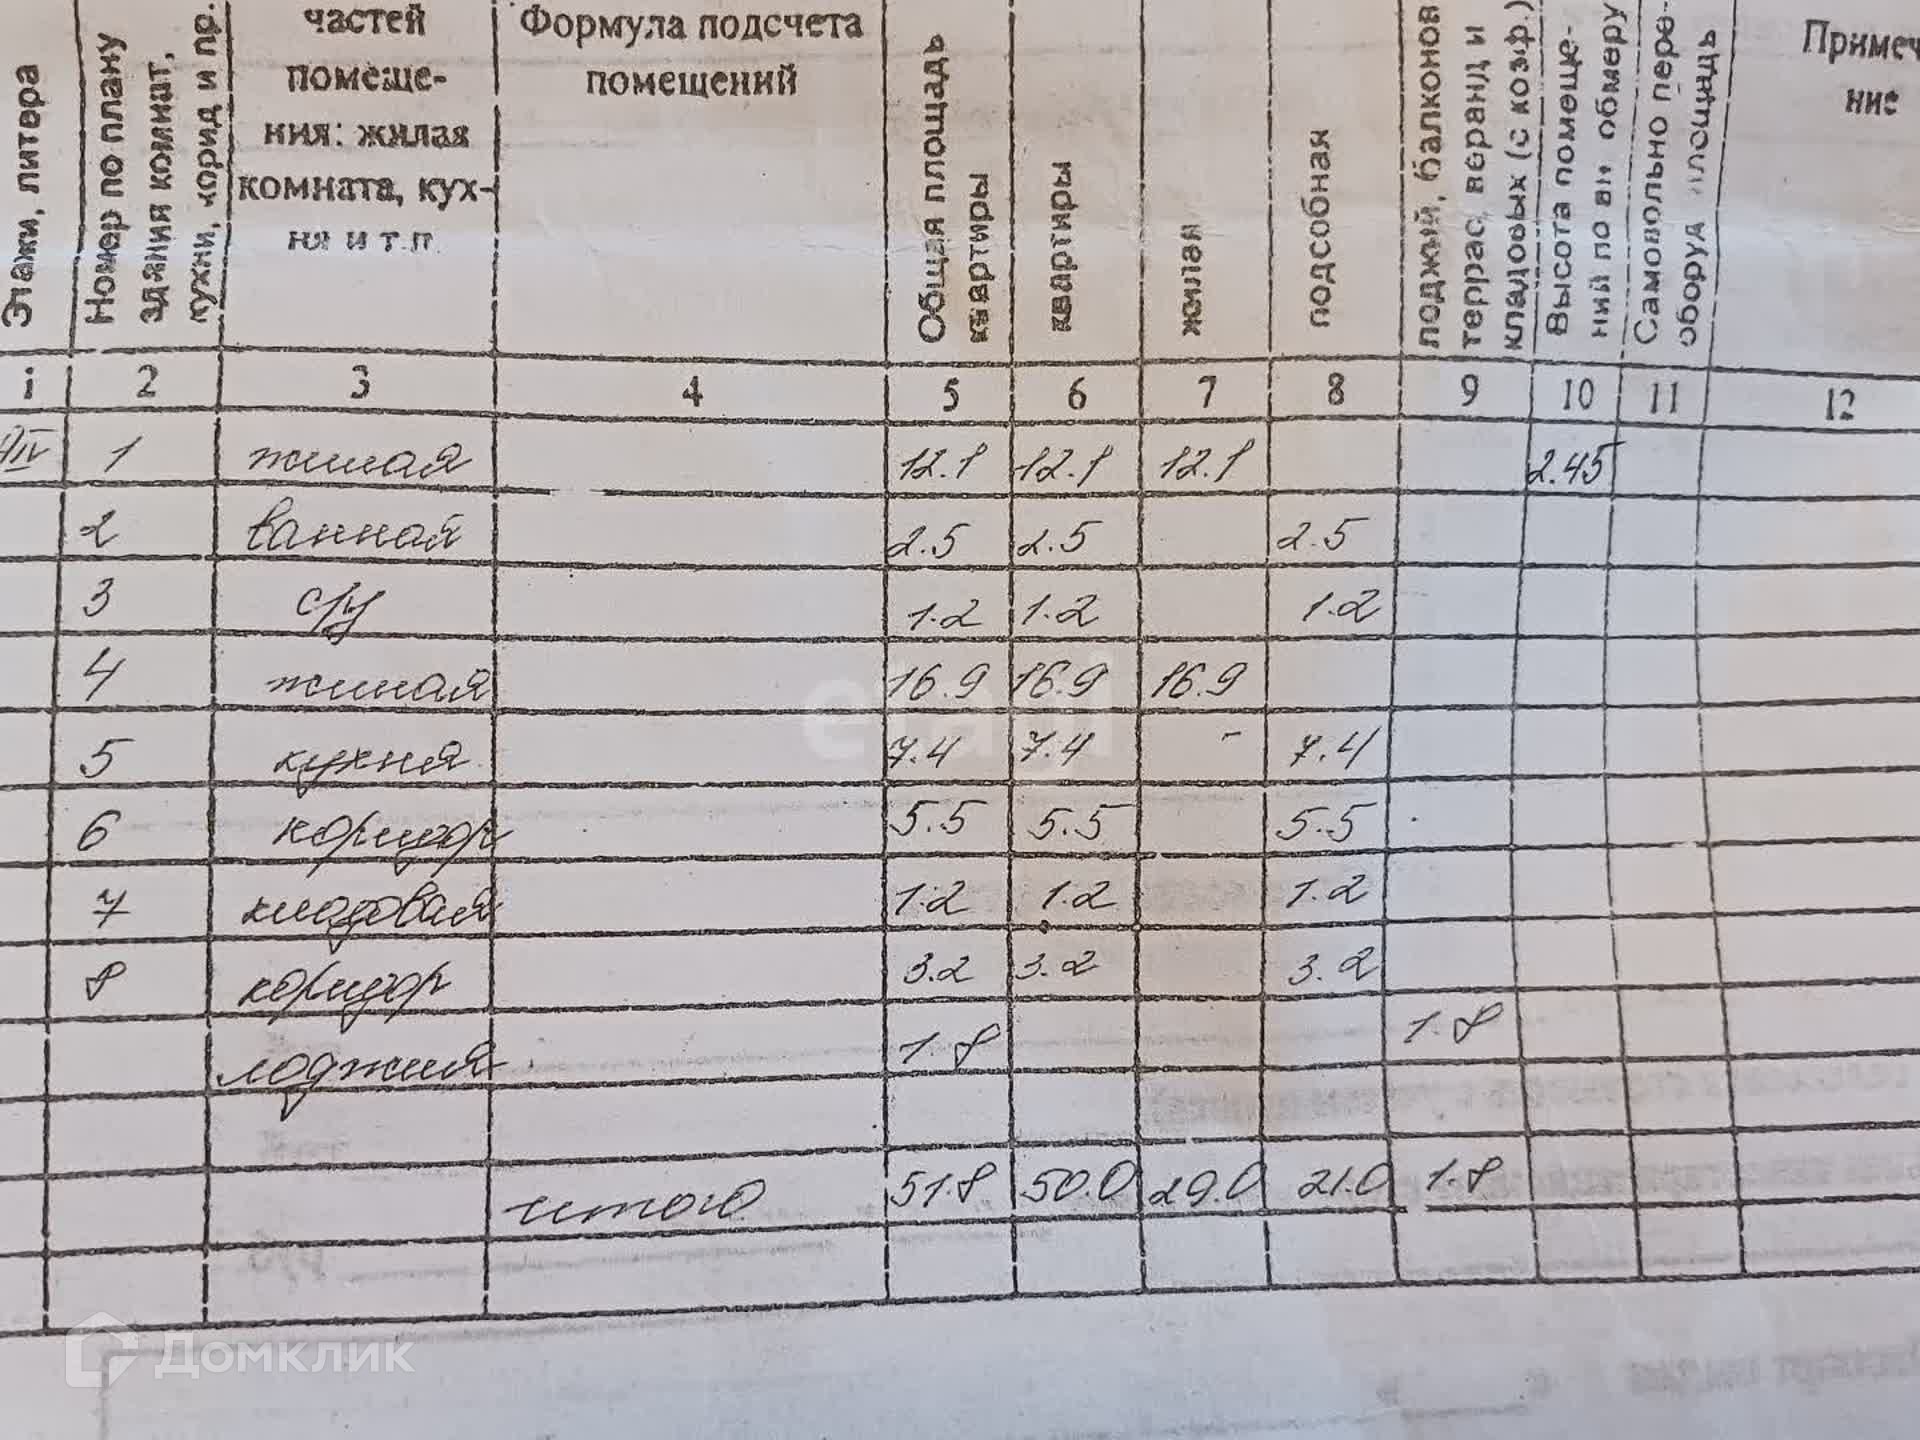 Этажи, литера
Номер по плану
здания комнат,
кухни, корид и пр.
частей
помеще-
ния: жилая
комната, кух-
ня и т.п
Формула подсчета
помещений
Общая площадь
квартиры
квартиры
жилая
подсобная
лоджий, балконов
террас, веранд и
кладовых (с коэф.)
Высота помеще-
ний по вн обмеру
Самовольно пере-
оборуд площадь
Примеч
ние
1 2 3 4 5 6 7 8 9 10 11 12
IV 1 жилая 12.1 12.1 12.1 2.45
2 ванная 2.5 2.5 2.5
3 с/у 1.2 1.2 1.2
4 жилая 16.9 16.9 16.9
5 кухня 7.4 7.4 - 7.4
6 коридор 5.5 5.5 5.5
7 кладовая 1.2 1.2 1.2
8 коридор 3.2 3.2 3.2
лоджия 1.8 1.8
итого 51.8 50.0 29.0 21.0 1.8
etagi
Домклик